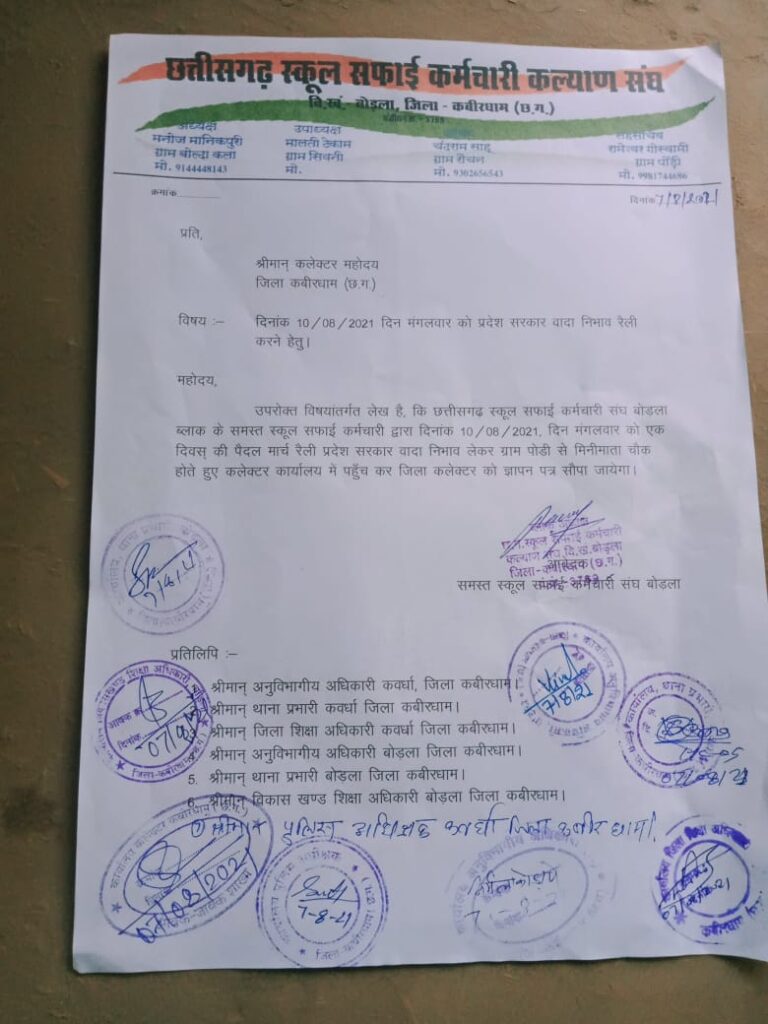 छत्तीसगढ़ स्कूल सफाई कर्मचारी कल्याण संघ
वि.खं.- बोड़ला, जिला - कबीरधाम (छ.ग.)
अध्यक्ष
मनोज मानिकपुरी
ग्राम बोल्दा कला
मो. 9144448143
उपाध्यक्ष
मालती टेकाम
ग्राम सिवनी
मो.
चंदूराम साहू
ग्राम रोचन
मो. 9302656543
सहसचिव
रामेश्वर गोस्वामी
ग्राम पोंड़ी
मो. 9981744686
क्रमांक
दिनांक 7/8/2021
प्रति,
श्रीमान् कलेक्टर महोदय
जिला कबीरधाम (छ.ग.)
विषय :– दिनांक 10/08/2021 दिन मंगलवार को प्रदेश सरकार वादा निभाव रैली
करने हेतु।
महोदय,
उपरोक्त विषयांतर्गत लेख है, कि छत्तीसगढ़ स्कूल सफाई कर्मचारी संघ बोड़ला
ब्लाक के समस्त स्कूल सफाई कर्मचारी द्वारा दिनांक 10/08/2021, दिन मंगलवार को एक
दिवस् की पैदल मार्च रैली प्रदेश सरकार वादा निभाव लेकर ग्राम पोडी से मिनीमाता चौक
होते हुए कलेक्टर कार्यालय में पहुँच कर जिला कलेक्टर को ज्ञापन पत्र सौपा जायेगा।
छ.ग.स्कूल सफाई कर्मचारी
कल्याण संघ वि.ख.बोड़ला
जिला-कबीरधाम (छ.ग.)
आवेदक
समस्त स्कूल सफाई कर्मचारी संघ बोड़ला
प्रतिलिपि :–
श्रीमान् अनुविभागीय अधिकारी कवर्धा, जिला कबीरधाम।
श्रीमान् थाना प्रभारी कवर्धा जिला कबीरधाम।
श्रीमान् जिला शिक्षा अधिकारी कवर्धा जिला कबीरधाम।
श्रीमान् अनुविभागीय अधिकारी बोड़ला जिला कबीरधाम।
5. श्रीमान् थाना प्रभारी बोड़ला जिला कबीरधाम।
6. श्रीमान् विकास खण्ड शिक्षा अधिकारी बोड़ला जिला कबीरधाम।
श्रीमान पुलिस कवर्धा जिला कबीरधाम।
7/8/21
07/08/2021
7-8-21